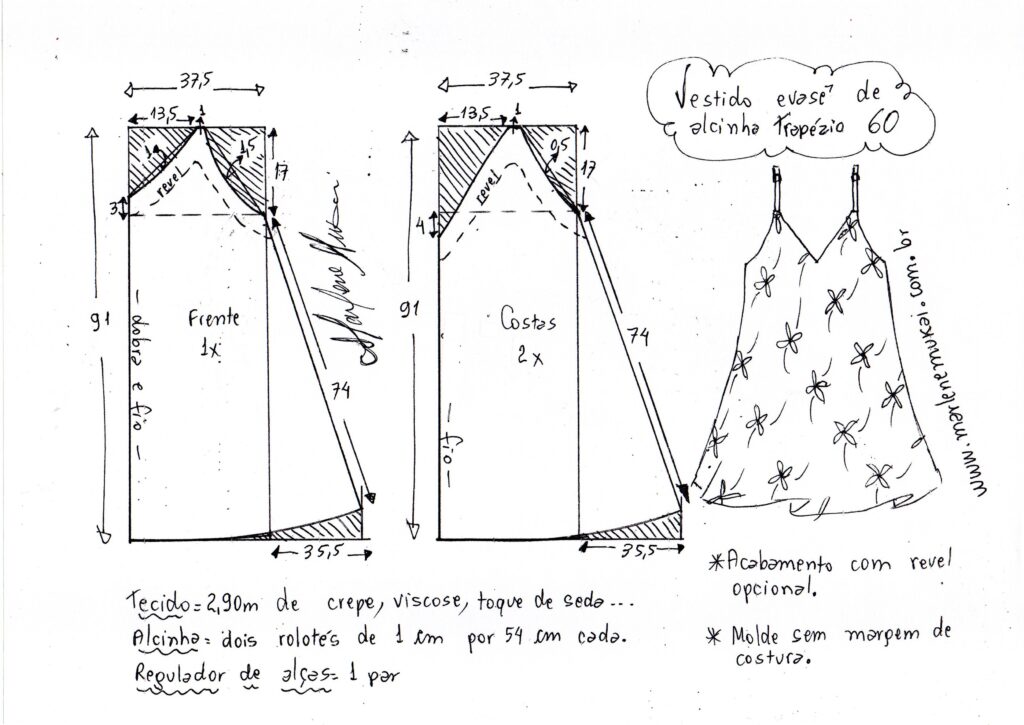 Vestido evasê de
alcinha Trapézio 60
37,5
13,5
1
1
1,5
17
revel
3
91
Frente
1x
- dobra e fio -
74
35,5
Marlene Mukai
37,5
13,5
1
0,5
17
revel
4
91
Costas
2x
- fio -
74
35,5
www.marlenemukai.com.br
Tecido = 2,90m de crepe, viscose, toque de seda...
Alcinha = dois rolotês de 1 cm por 54 cm cada.
Regulador de alças = 1 par
* Acabamento com revel
opcional.
* Molde sem margem de
costura.